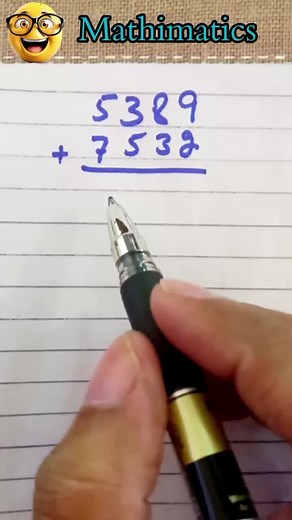 Mathimatics
5389
+ 7532